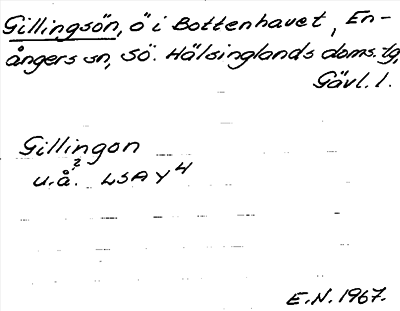 Gillingsön, ö i Bottenhavet, En-
ångers sn, Sö. Hälsinglands doms.tg,
Gävl. l.
Gillingon
u.å.² LSA Y4
E.N. 1967.